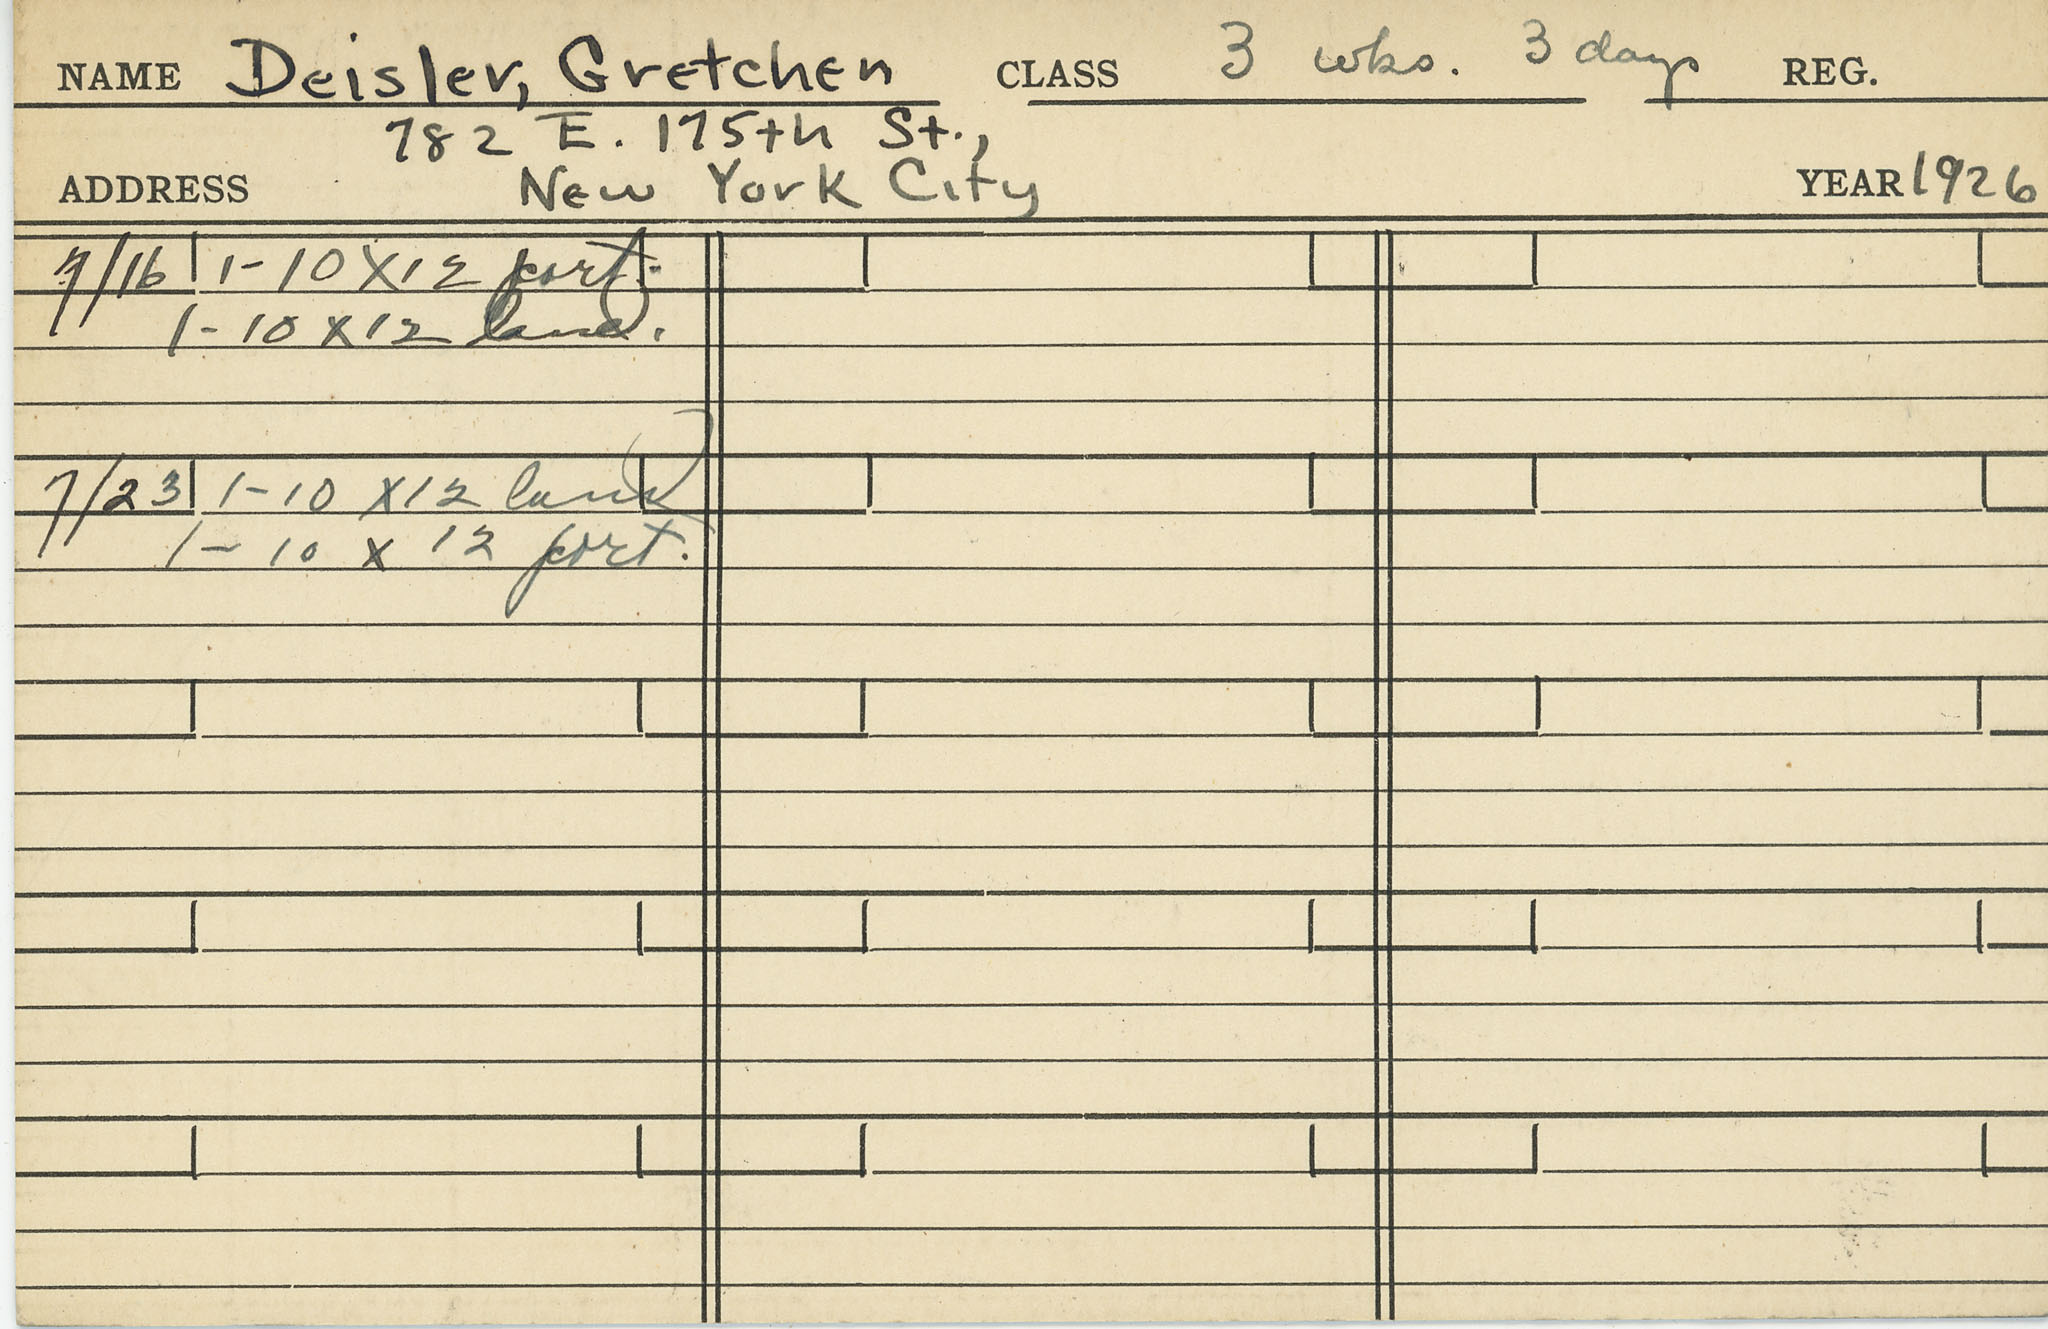 NAME Deisler, Gretchen CLASS 3 wks. 3 days REG.
782 E. 175th St.,
ADDRESS New York City YEAR 1926
7/16 1-10 X 12 port.
1-10 X 12 land.
7/23 1-10 X 12 land
1-10 X 12 port.